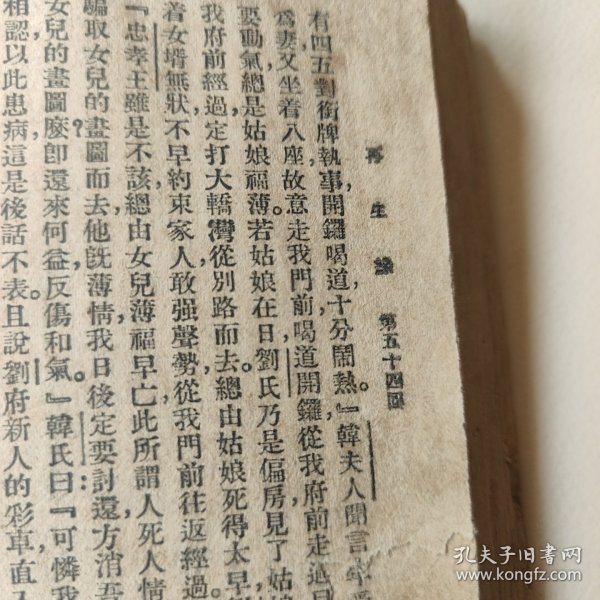 再生緣 第五十四回
有四五對銜牌執事，開鑼喝道，十分鬧熱。』韓夫人聞言
爲妻又坐着八座，故意走我門前，喝道開鑼，從我府前走過
要動氣，總是姑娘福薄。若姑娘在日，劉氏乃是偏房，見了姑
我府前經過，定打大轎灣從別路而去。總由姑娘死得太早
着女壻無狀，不早約束家人，敢强聲勢，從我門前往返經過。
『忠孝王雖是不該，總由女兒薄福早亡，此所謂人死人情
騙取女兒的畫圖而去，他旣薄情，我日後定要討還，方消吾
女兒的畫圖麽？卽還來何益，反傷和氣。』韓氏曰：『可憐我
相認，以此患病，這是後話不表。且說劉府新人的彩車，直
孔夫子旧书网
www.kongfz.com